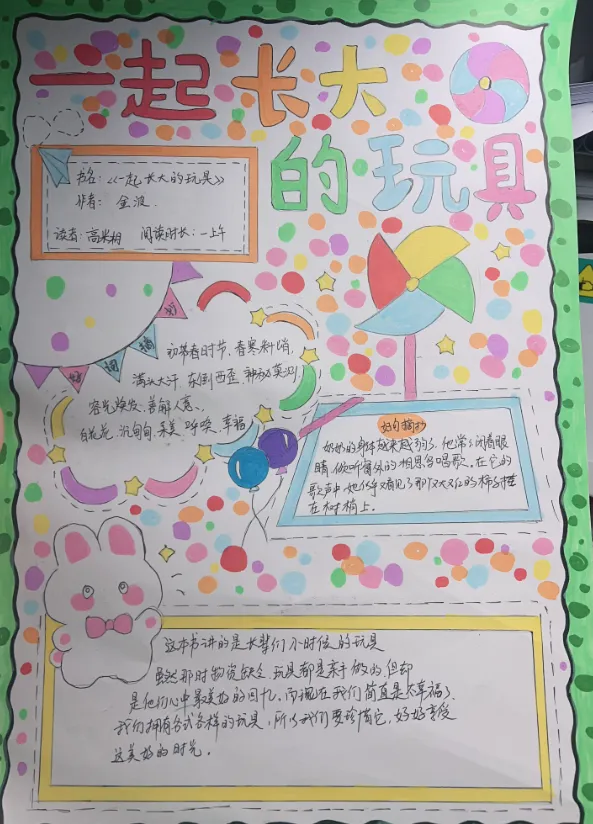 一起长大
的玩具
书名：《一起长大的玩具》
作者：金波
读者：高米相 阅读时长：一上午
好
词
摘
初带春时节、春寒料峭
满头大汗、东倒西歪、神秘莫测
容光焕发、善解人意、
白花花、沉甸甸、柔美、呼唤、幸福
好句摘抄
奶奶的身体越来越弱了，他常常闭着眼
睛，倾听窗外的相思鸟唱歌。在它的
歌声中，她似乎又看见了那又大又红的柿子挂
在树梢上。
这本书讲的是长辈们小时候的玩具
虽然那时物资缺乏 玩具都是亲手做的，但却
是他们心中最美好的回忆，而现在我们简直是太幸福了
我们拥有各式各样的玩具，所以我们要珍惜它，好好享受
这美好的时光。